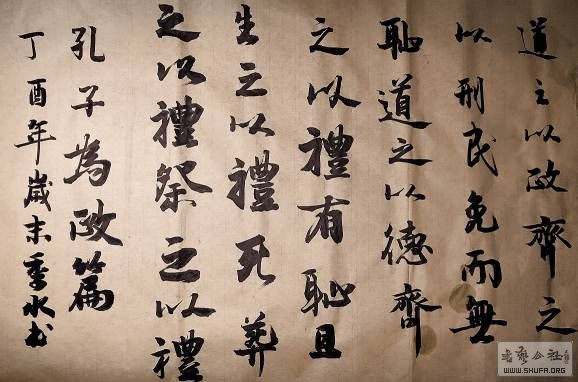 道之以政齊之
以刑民免而無
恥道之以德齊
之以禮有恥且
生之以禮死葬
之以禮祭之以禮
孔子為政篇
丁酉年歲末季水书
书艺公社
WWW.SHUFA.ORG